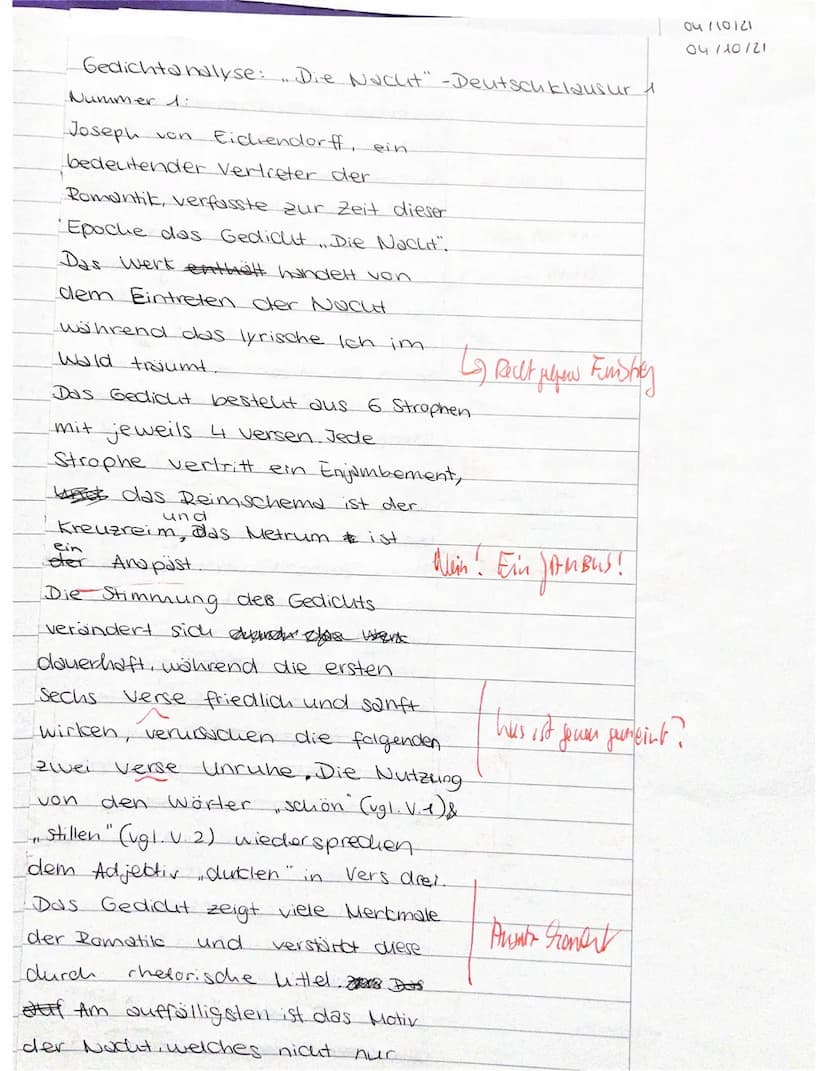 04/10/21
04/10/21
Gedichtanalyse: „Die Nacht" - Deutschklausur 1
Nummer 1:
Joseph von Eichendorff, ein
bedeutender Vertreter der
Romantik, verfasste zur Zeit dieser
Epoche das Gedicht „Die Nacht".
Das Werk enthält handelt von
dem Eintreten der Nacht
während das lyrische Ich im
Wald träumt.
Das Gedicht besteht aus 6 Strophen
mit jeweils 4 Versen. Jede
Strophe vertritt ein Enjambement,
das Reimschema ist der
und
Kreuzreim, das Metrum ist
ein
der Anapäst.
Nein! Ein JAMBUS!
Die Stimmung des Gedichts
verändert sich durch das Werk
dauerhaft, während die ersten
sechs Verse friedlich und sanft
wirken, verursachen die folgenden
Was ist genau gemeint?
zwei Verse Unruhe. Die Nutzung
von den Wörter „schön" (vgl. V. 1) &
„stillen" (vgl. V. 2) wiedersprechen
dem Adjektiv „dunklen" in Vers drei.
Das Gedicht zeigt viele Merkmale
der Romatik und verstärkt diese
durch rhetorische Mittel. Das
auf Am auffälligsten ist das Motiv
der Nacht, welches nicht nur